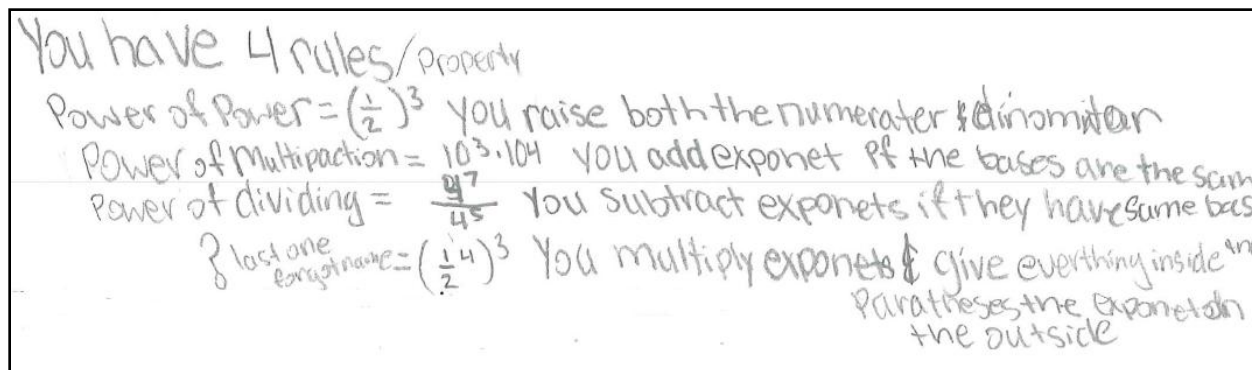 You have 4 rules/Property
Power of Power = (1/2)³ you raise both the numerater & dinomitor
Power of Multipaction = 10³·10⁴ you add exponet if the bases are the sam
Power of dividing = 4⁷/4⁵ You subtract exponets if they have same bas
} last one forgot name = (1/2⁴)³ You multiply exponets & give everthing inside in
Paratheses the exponet on
the outside